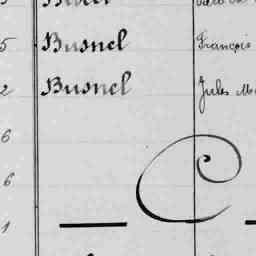 5 Busnel François
2 Busnel Jules
6
6 C
1